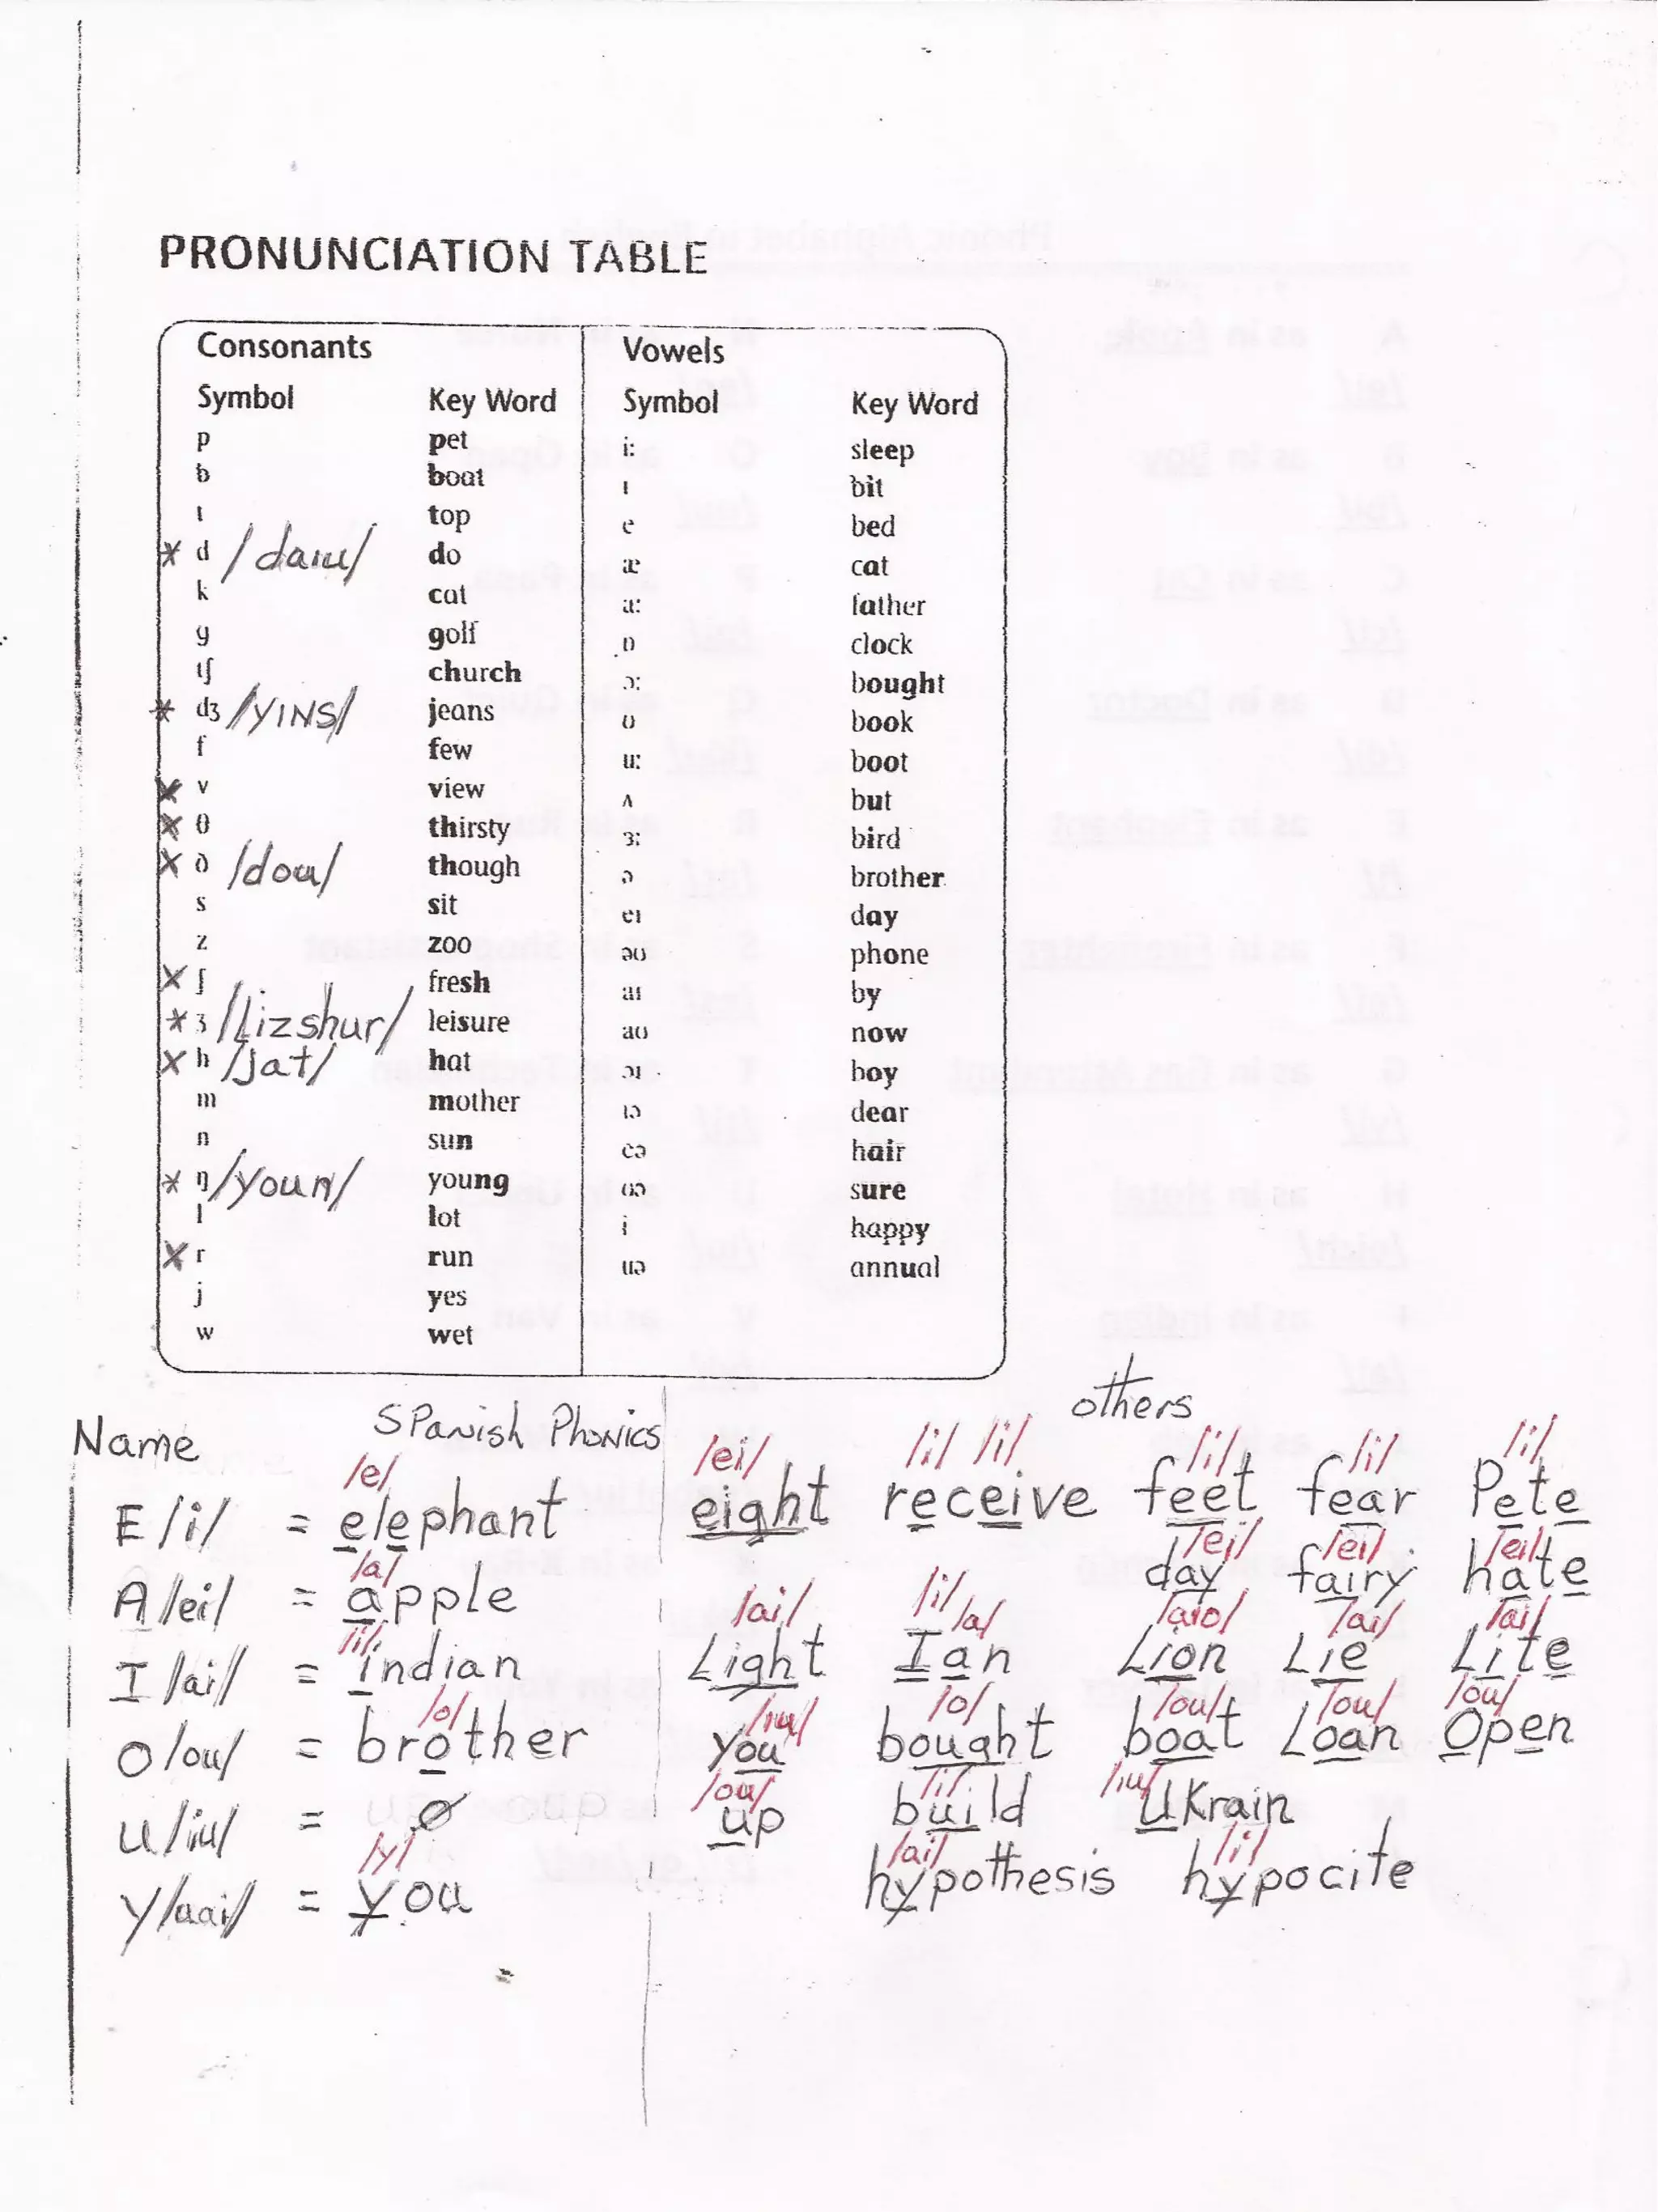 PRONUNCIATION TABLE
Consonants Vowels
Symbol Key Word Symbol Key Word
p pet i: sleep
b boat ɪ bit
t top e bed
* d /daiu/ do æ cat
k cut ɑ: father
g golf ɒ clock
tʃ church ɔ: bought
* dʒ /YINS/ jeans ʊ book
f few u: boot
X v view ʌ but
X θ thirsty ɜ: bird
X ð /dou/ though ə brother
s sit eɪ day
z zoo əʊ phone
X ʃ fresh aɪ by
* ʒ /Lizshur/ leisure aʊ now
X h /jat/ hot ɔɪ boy
m mother ɪə dear
n sun eə hair
* ŋ /youn/ young ʊə sure
l lot i happy
X r run uə annual
j yes
w wet
others
Name SPanish Phonics
/e/ /ei/ /i/ /i/ /i/ /i/ /i/
E /i/ = elephant eight receive feet fear Pete
/a/ /ei/ /ei/ /ei/
A /ei/ = apple day fairy hate
/i/ /ai/ /i/ /a/ /aio/ /ai/ /ai/
I /ai/ = indian Light Ian Lion Lie Lite
/o/ /iu/ /o/ /ou/ /ou/ /ou/
O /ou/ = brother you bought boat Loan Open
/ou/ /i/ /iu/
u /iu/ = ø up build UKrain
/y/ /ai/ /i/
Y /uai/ = you hypothesis hypocite